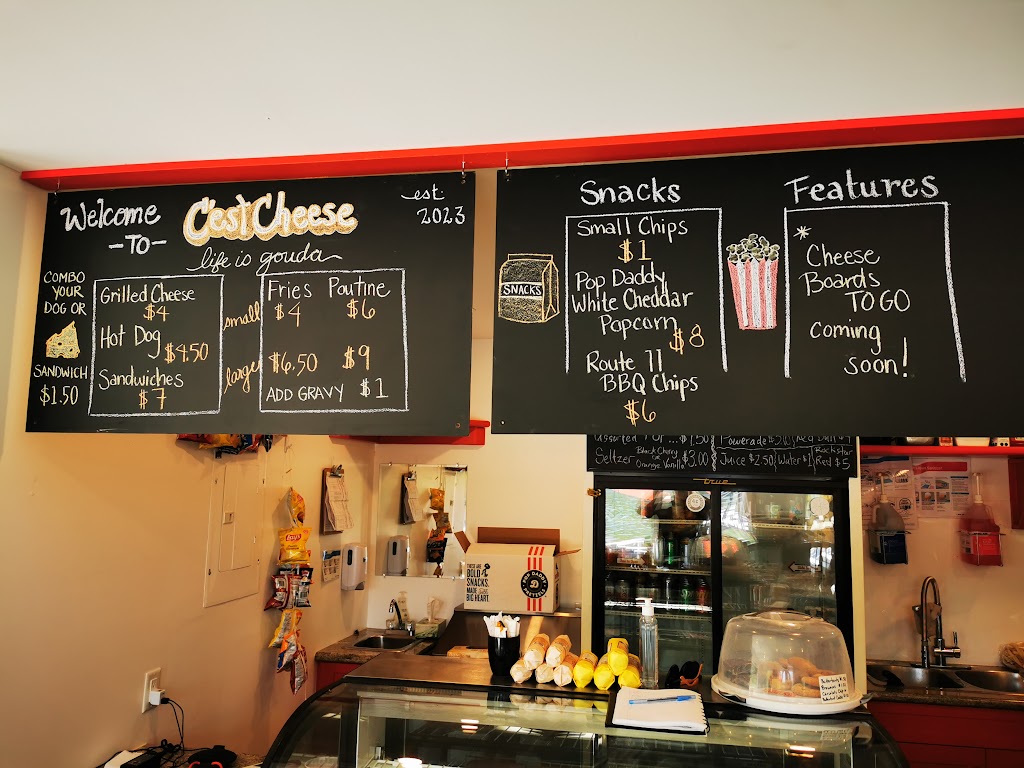 Welcome
-TO-
C'est Cheese
est.
2023
life is gouda
COMBO
YOUR
DOG OR
SANDWICH
$1.50
Grilled Cheese
$4
Hot Dog
$4.50
Sandwiches
$7
small
large
Fries Poutine
$4 $6
$6.50 $9
ADD GRAVY $1
SNACKS
Snacks
Small Chips
$1
Pop Daddy
White Cheddar
Popcorn
$8
Route 11
BBQ Chips
$6
Features
* Cheese
Boards
TO GO
coming
soon!
Assorted $1.50
Seltzer Black Cherry
or
Orange Vanilla $3.00
Powerade
Juice $2.50 Water $1
Rockstar
Red $5
true
Lay's
THESE ARE
BOLD
SNACKS,
MADE WITH
BIG HEART.
POP DADDY
PRETZELS